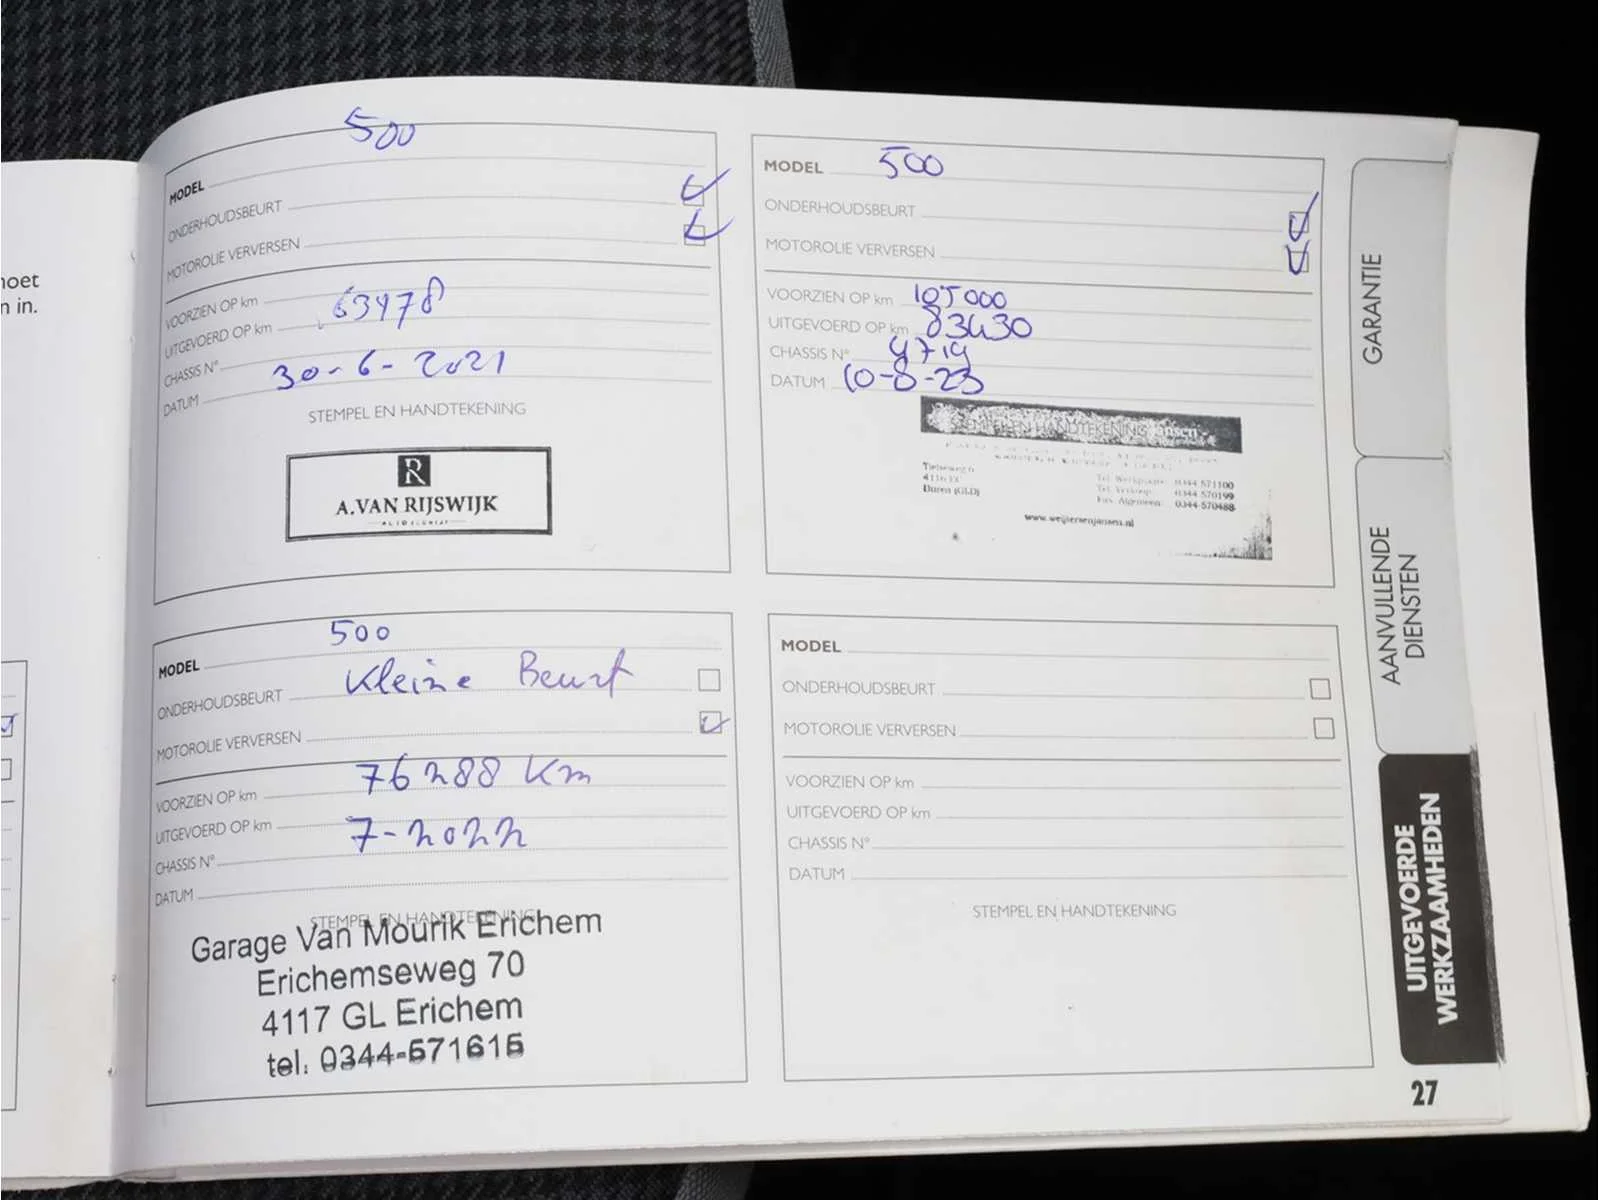 noet
n in.
500
MODEL
ONDERHOUDSBEURT
MOTOROLIE VERVERSEN
VOORZIEN OP km
63478
UITGEVOERD OP km
CHASSIS N°
30-6-2021
DATUM
STEMPEL EN HANDTEKENING
R
A.VAN RIJSWIJK
500
MODEL
Kleine Beurt
ONDERHOUDSBEURT
MOTOROLIE VERVERSEN
76288 Km
VOORZIEN OP km
UITGEVOERD OP km
7-2022
CHASSIS N°
DATUM
STEMPEL EN HANDTEKENING
Garage Van Mourik Erichem
Erichemseweg 70
4117 GL Erichem
tel. 0344-571615
MODEL 500
ONDERHOUDSBEURT
MOTOROLIE VERVERSEN
VOORZIEN OP km 105000
UITGEVOERD OP km 83430
CHASSIS N° 4719
DATUM 10-8-23
STEMPEL EN HANDTEKENING Jansen
Buren (GLD)
Tel. Werkplaats: 0344-571100
Tel. Verkoop: 0344-570199
Fax. Algemeen: 0344-570488
www.weijtersenjansen.nl
MODEL
ONDERHOUDSBEURT
MOTOROLIE VERVERSEN
VOORZIEN OP km
UITGEVOERD OP km
CHASSIS N°
DATUM
STEMPEL EN HANDTEKENING
GARANTIE
AANVULLENDE
DIENSTEN
UITGEVOERDE
WERKZAAMHEDEN
27